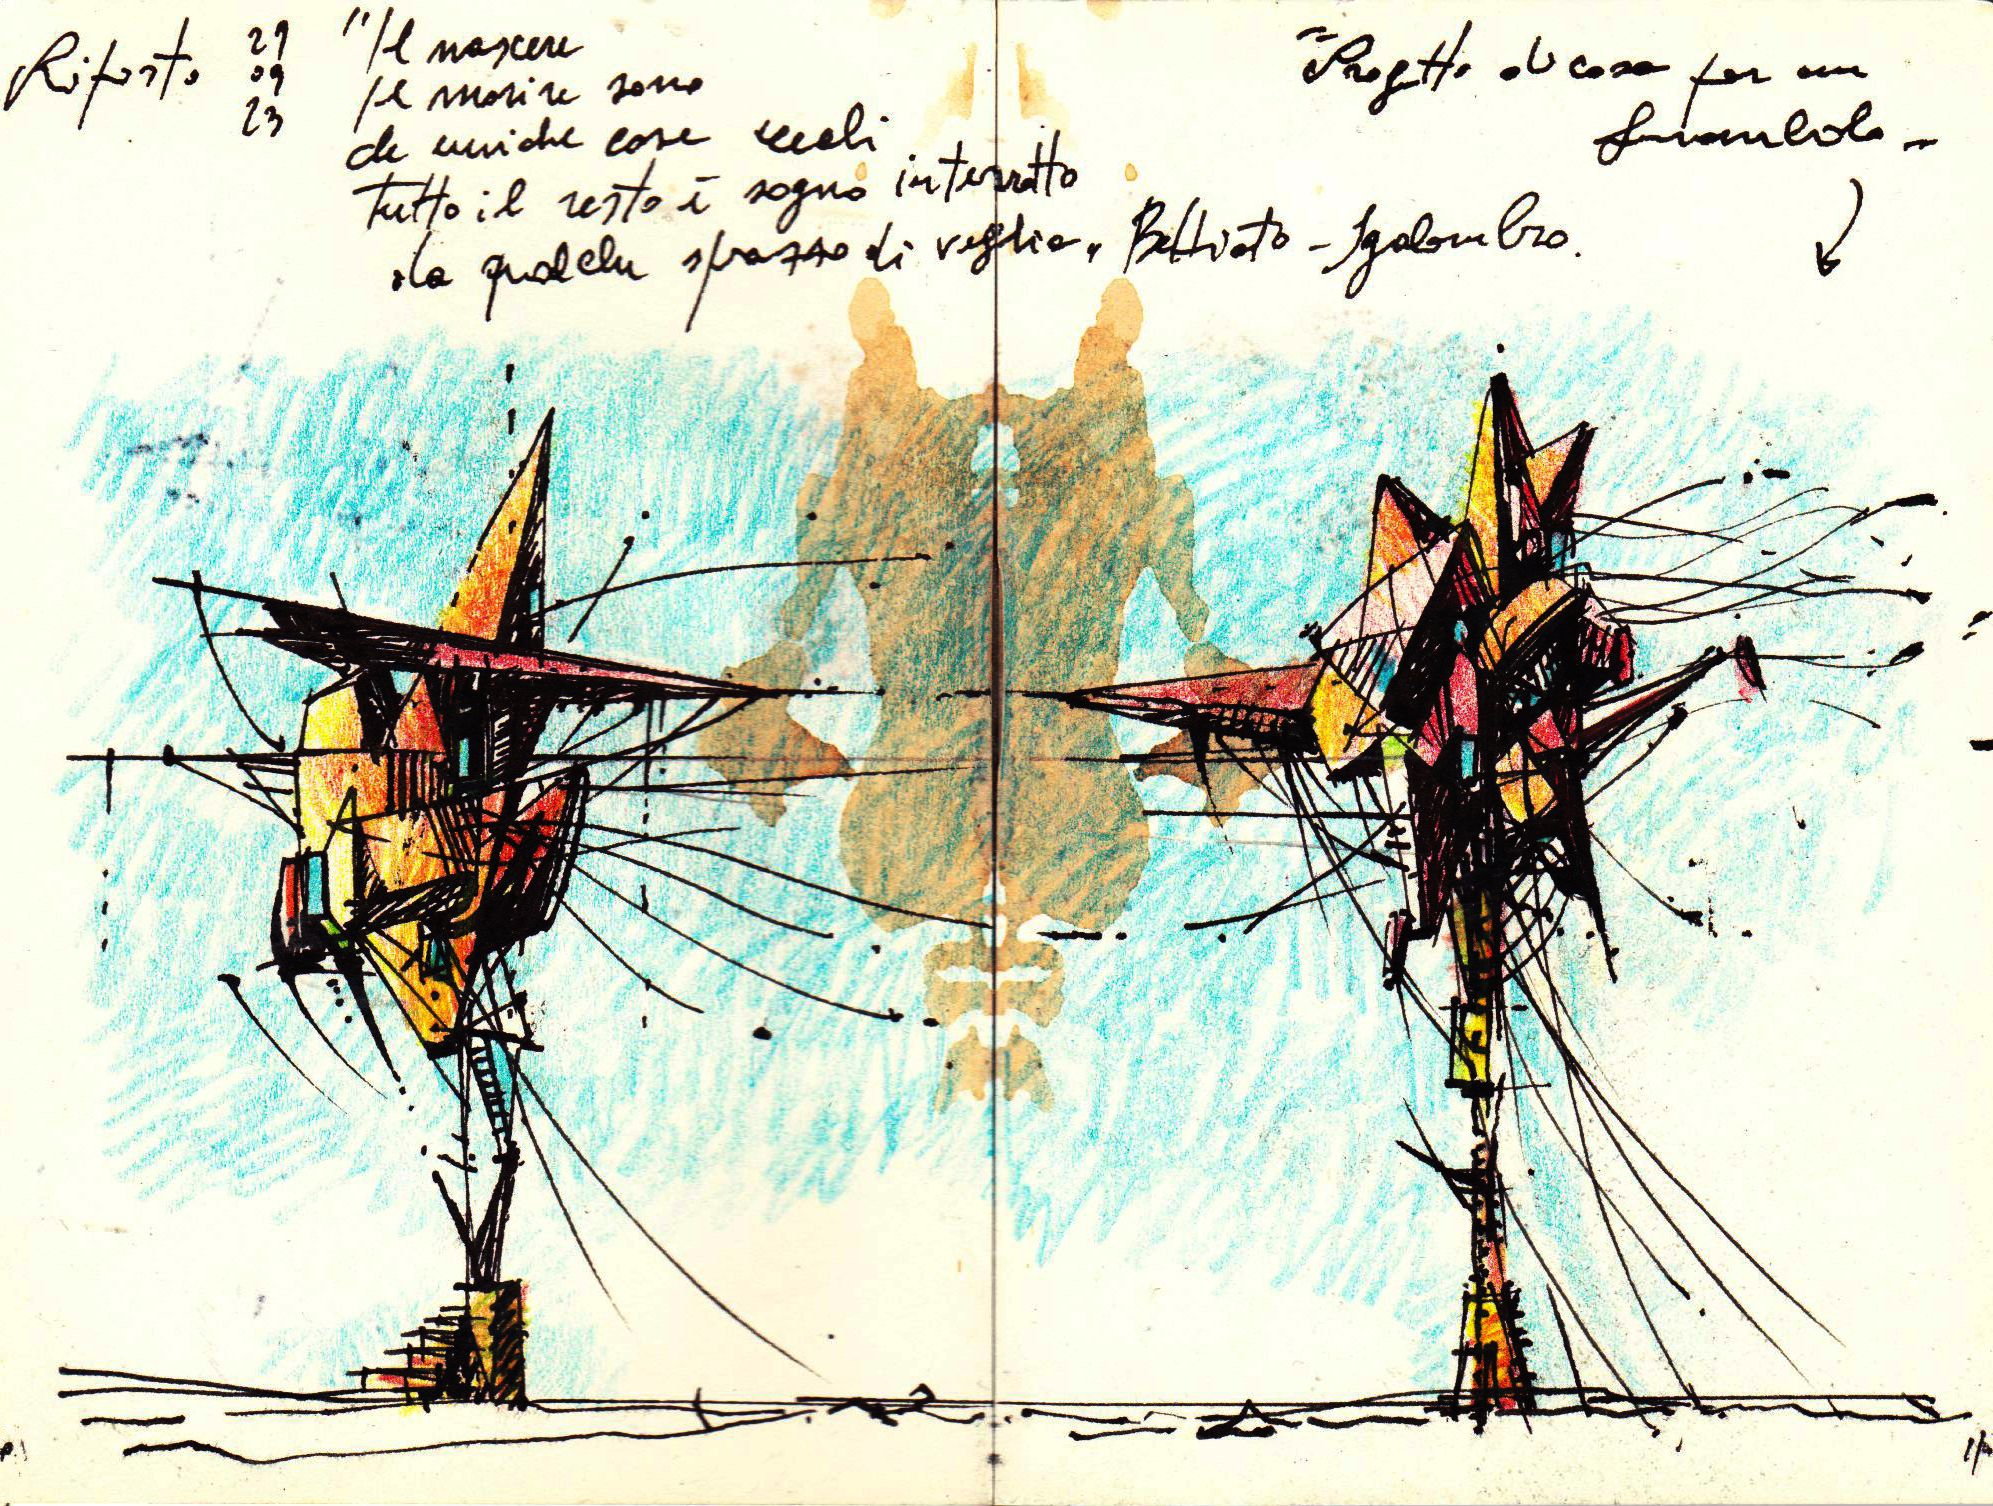 Riposto 29
09
23
"Il nascere
Il morire sono
le uniche cose reali
tutto il resto è sogno interrotto
da qualche sprazzo di veglia„ Battiato - Sgalambro.
"Progetto di casa per un
funambolo -